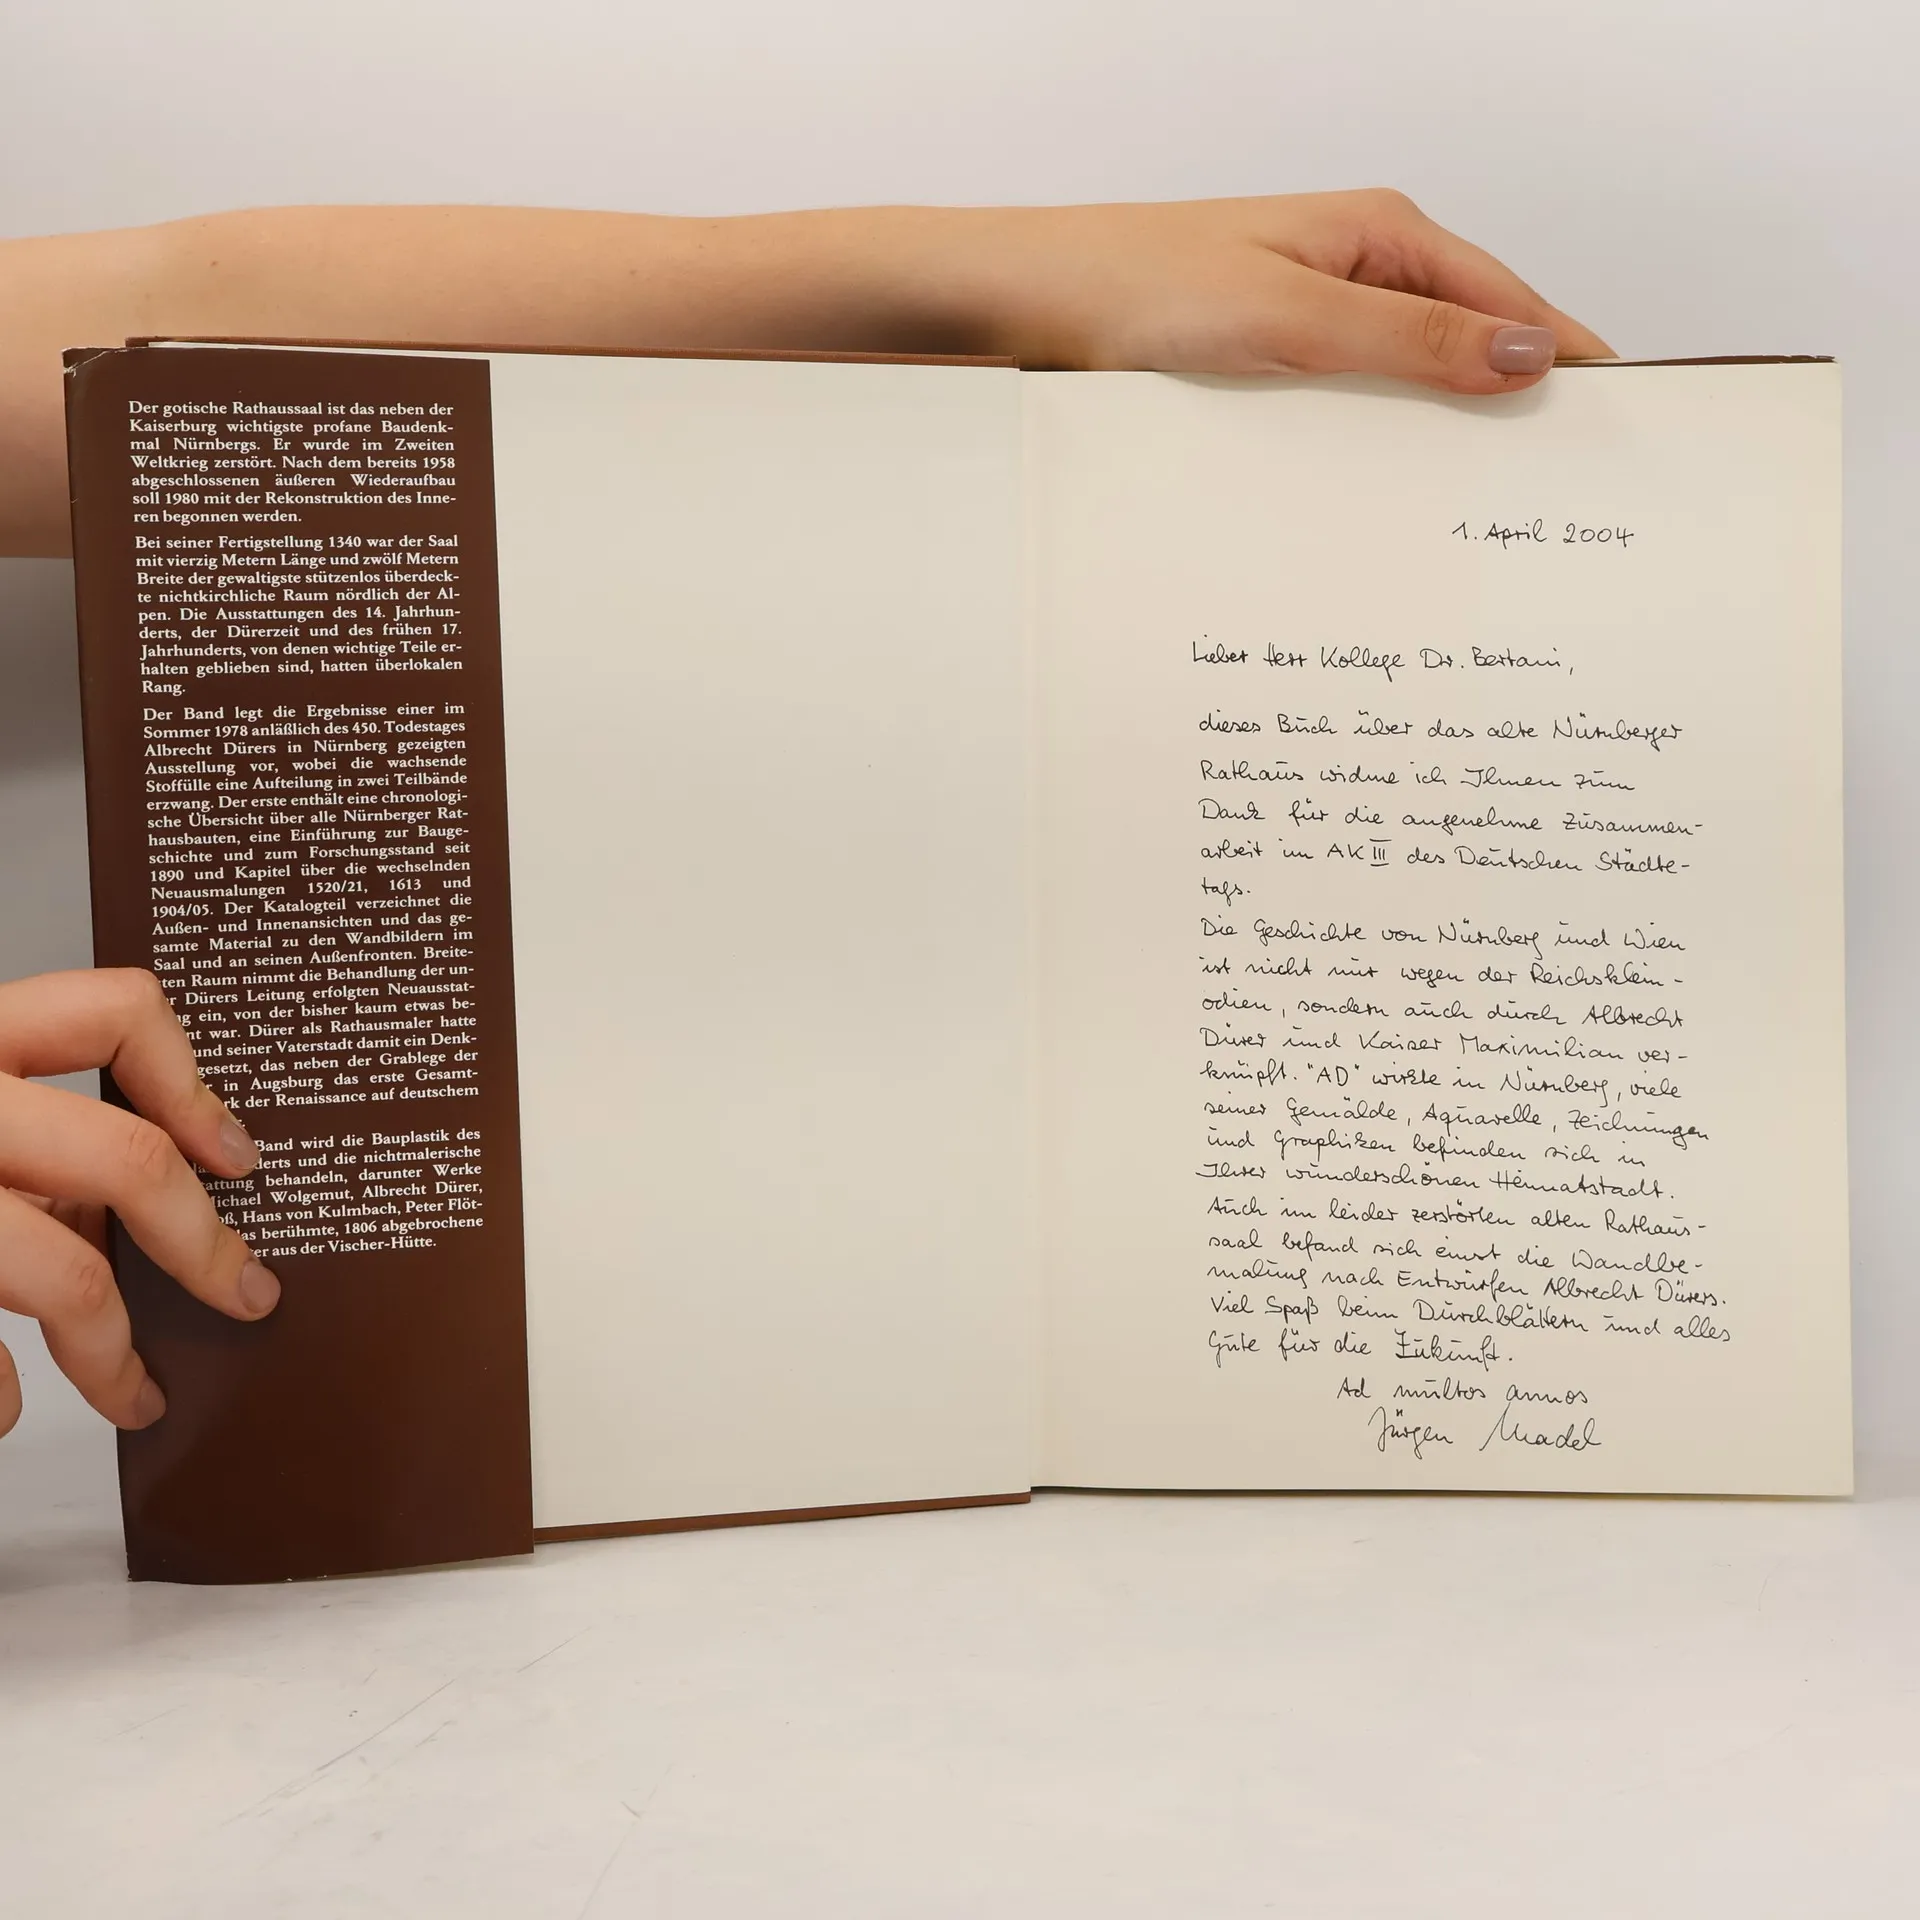 Der gotische Rathaussaal ist das neben der
Kaiserburg wichtigste profane Baudenk-
mal Nürnbergs. Er wurde im Zweiten
Weltkrieg zerstört. Nach dem bereits 1958
abgeschlossenen äußeren Wiederaufbau
soll 1980 mit der Rekonstruktion des Inne-
ren begonnen werden.
Bei seiner Fertigstellung 1340 war der Saal
mit vierzig Metern Länge und zwölf Metern
Breite der gewaltigste stützenlos überdeck-
te nichtkirchliche Raum nördlich der Al-
pen. Die Ausstattungen des 14. Jahrhun-
derts, der Dürerzeit und des frühen 17.
Jahrhunderts, von denen wichtige Teile er-
halten geblieben sind, hatten überlokalen
Rang.
Der Band legt die Ergebnisse einer im
Sommer 1978 anläßlich des 450. Todestages
Albrecht Dürers in Nürnberg gezeigten
Ausstellung vor, wobei die wachsende
Stoffülle eine Aufteilung in zwei Teilbände
erzwang. Der erste enthält eine chronologi-
sche Übersicht über alle Nürnberger Rat-
hausbauten, eine Einführung zur Bauge-
schichte und zum Forschungsstand seit
1890 und Kapitel über die wechselnden
Neuausmalungen 1520/21, 1613 und
1904/05. Der Katalogteil verzeichnet die
Außen- und Innenansichten und das ge-
samte Material zu den Wandbildern im
Saal und an seinen Außenfronten. Breite-
ten Raum nimmt die Behandlung der un-
Dürers Leitung erfolgten Neuausstat-
ein, von der bisher kaum etwas be-
war. Dürer als Rathausmaler hatte
und seiner Vaterstadt damit ein Denk-
gesetzt, das neben der Grablege der
in Augsburg das erste Gesamt-
der Renaissance auf deutschem
Band wird die Bauplastik des
und die nichtmalerische
behandeln, darunter Werke
Wolgemut, Albrecht Dürer,
Hans von Kulmbach, Peter Flöt-
berühmte, 1806 abgebrochene
aus der Vischer-Hütte.
1. April 2004
Lieber Herr Kollege Dr. Bertani,
dieses Buch über das alte Nürnberger
Rathaus widme ich Ihnen zum
Dank für die angenehme Zusammen-
arbeit im AK III des Deutschen Städte-
tags.
Die Geschichte von Nürnberg und Wien
ist nicht nur wegen der Reichsklein-
odien, sondern auch durch Albrecht
Dürer und Kaiser Maximilian ver-
knüpft. "AD" wirkte in Nürnberg, viele
seiner Gemälde, Aquarelle, Zeichnungen
und Graphiken befinden sich in
Ihrer wunderschönen Heimatstadt.
Auch im leider zerstörten alten Rathaus-
saal befand sich einst die Wandbe-
malung nach Entwürfen Albrecht Dürers.
Viel Spaß beim Durchblättern und alles
Gute für die Zukunft.
Ad multos annos
Jürgen Madel